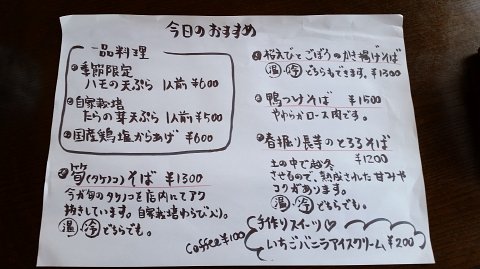 今日のおすすめ
一品料理
●季節限定
ハモの天ぷら 1人前 ¥600
●自家栽培
たらの芽天ぷら 1人前 ¥500
●国産鶏塩からあげ ¥600
●筍(タケノコ)そば ¥1300
今が旬のタケノコを店内にてアク
抜きしています。自家栽培わらび入り。
温・冷どちらでも。
●桜えびとごぼうのかき揚げそば
温・冷どちらもできます。¥1300
●鴨つけそば ¥1500
やわらかロース肉です。
●春掘り長芋のとろろそば
¥1200
土の中で越冬
させるもので、熟成された甘みや
コクがあります。
温・冷どちらでも。
手作りスイーツ♡
いちごバニラアイスクリーム ¥200
Coffee ¥100